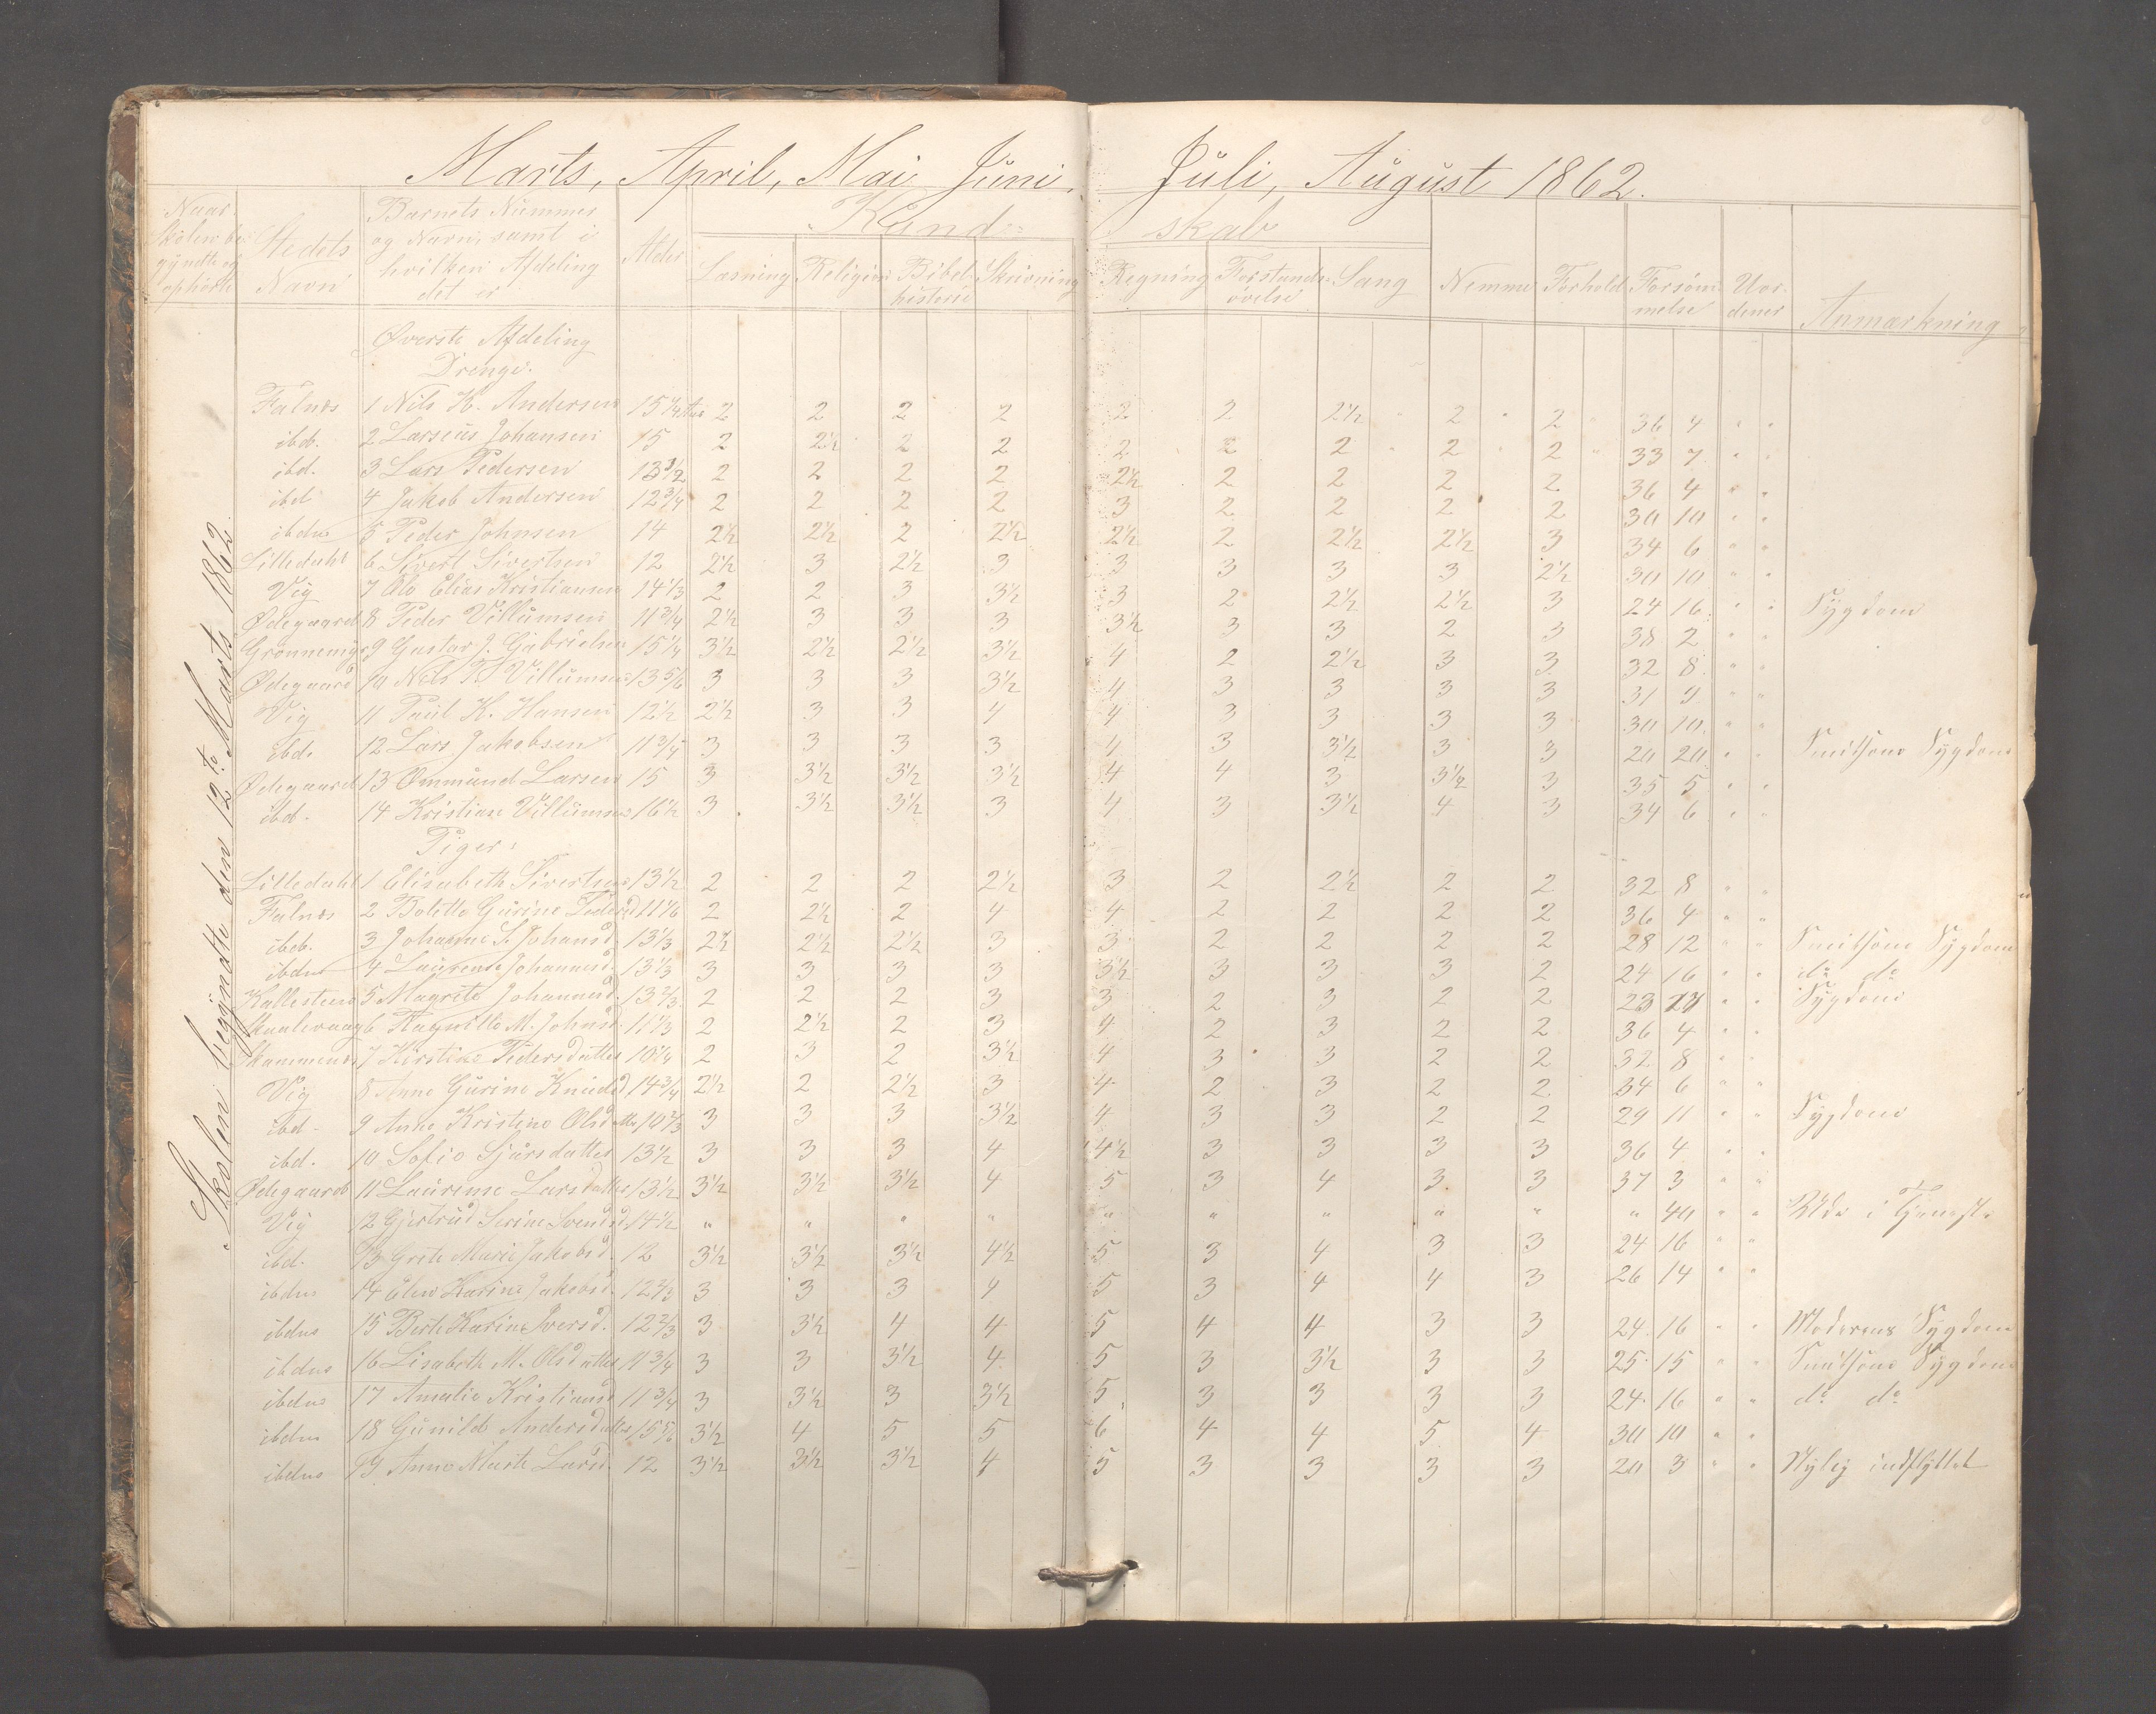 Marts, April, Mai Juni. Juli, August 1862.
Naar Skolen begyndte og ophörte
Stedets Navn
Barnets Nummer og Navn, samt i hvilken Afdeling det er
Alder
Kund- skab
Læsning Religion Bibelhistorie Skrivning Regning Forstandsøvelse Sang Nemme Forhold Forsømmelse Uordener Anmærkning
Skolen begyndte den 12te Marts 1862.
Øverste Afdeling
Drenge.
Falnes 1 Nils K. Andersen 15 1/4 2 2 2 2 2 2 2½ 2 2 36 4 " "
ibd. 2 Larseus Johansen 15 2 2½ 2 2 2 2 2 2 2 33 7 " "
ibd. 3 Lars Pedersen 13 1/2 2 2 2 2 2½ 2 2 2 2 36 4 " "
ibd 4 Jakob Andersen 12 3/4 2 2 2 2 3 2 2 2 2 30 10 " "
ibdns 5 Peder Johnsen 14 2½ 2½ 2 2½ 2½ 2 2½ 2½ 3 34 6 " "
Lilledahl 6 Sivert Sivertsen 12 2½ 3 2½ 3 3 3 3 3 2½ 30 10 " "
Vig 7 Ole Elias Kristiansen 14 1/3 2 2 3 3½ 3 2 2½ 2½ 3 24 16 " " Sygdom
Ødegaard 8 Peder Villumsen 11 3/4 2½ 3 3 3 3½ 3 3 2 3 38 2 " "
Grønnemyr 9 Gustav J. Gabrielsen 15 1/4 3½ 2½ 2½ 3½ 4 2 2½ 3 3 32 8 " "
Ødegaard 10 Nils T. Villumsen 13 5/6 3 3 3 3½ 4 3 3 3 3 31 9 " "
Vig 11 Paul K. Hansen 12½ 2½ 3 3 4 4 3 3 3 3 30 10 " "
ibd. 12 Lars Jakobsen 11 3/4 3 3 3 3 4 3 3½ 3 3 20 20 " " Smitsom Sygdom
Ødegaard 13 Ommund Larsen 15 3 3½ 3½ 3½ 4 4 3 3½ 3 35 5 " "
ibd. 14 Kristian Villumsen 16½ 3 3½ 3½ 3 4 3 3½ 4 3 34 6 " "
Piger.
Lilledahl 1 Elisabeth Sivertsen 13½ 2 2 2 2½ 3 2 2½ 2 2 32 8 " "
Falnes 2 Bolette Gurine Pedersd 11 1/6 2 2½ 2 4 4 2 2 2 2 36 4 " "
ibd. 3 Johanne S. Johansd. 13 1/3 2½ 2½ 2½ 3 3 2 2 2 2 28 12 " " Smitsom Sygdom
ibdns 4 Laurense Johannesd. 13 1/3 3 3 3 3 3½ 3 3 3 2 24 16 " " do do
Kallesteen 5 Magrete Johannesd. 13 2/3 2 2 2 3 3 2 3 2 2 23 17 " " Sygdom
Skaalevaag 6 Ragnille M. Johnsd. 11 1/3 2 2½ 2 3 4 2 3 2 2 36 4 " "
7 Kirstine Pedersdatter 10 1/4 2 3 2 3½ 4 3 3 2 2 32 8 " "
Vig 8 Anne Gurine Knudsd 14 3/4 2½ 2 2½ 3 4 2 3 2 2 34 6 " "
ibd. 9 Anne Kristine Olsd 10 2/3 3 3 3 3½ 4 3 3 2 2 29 11 " " Sygdom
ibd. 10 Sofie Sjursdatter 13½ 3 3 3 4 4½ 3 3 3 3 36 4 " "
Ødegaard 11 Laurense Larsdatter 13½ 3½ 3½ 3½ 4 5 3 4 3 3 37 3 " "
Vig 12 Gjertrud Serine Svendsd 14½ " " " " " " " " " " 40 " " Ude i Tjeneste
ibd. 13 Grete Marie Jakobsd. 12 3½ 3½ 3½ 4½ 5 3 4 3 3 24 16 " "
ibdns 14 Elen Karine Jakobsd. 12 2/3 3 3 3 4 5 3 4 4 3 26 14 " "
ibdns 15 Berte Karine Iversd. 12 2/3 3 3½ 4 4 5 4 4 3 3 24 16 " " Moderens Sygdom
ibdns 16 Lisabeth M. Olsdatter 11 3/4 3 3 3½ 4 5 3 3½ 3 3 25 15 " " Smitsom Sygdom
ibdns 17 Amalie Kristiansd 11 3/4 3 3½ 3 3½ 5 3 3 3 3 24 16 " " do do
ibdns 18 Gunilde Andersdatter 15 5/6 3½ 4 5 5 6 4 4 5 4 30 10 " "
ibdns 19 Anne Marte Larsd. 12 3½ 3½ 3½ 4 5 3 3 3 3 20 3 " " Nylig indflyttet